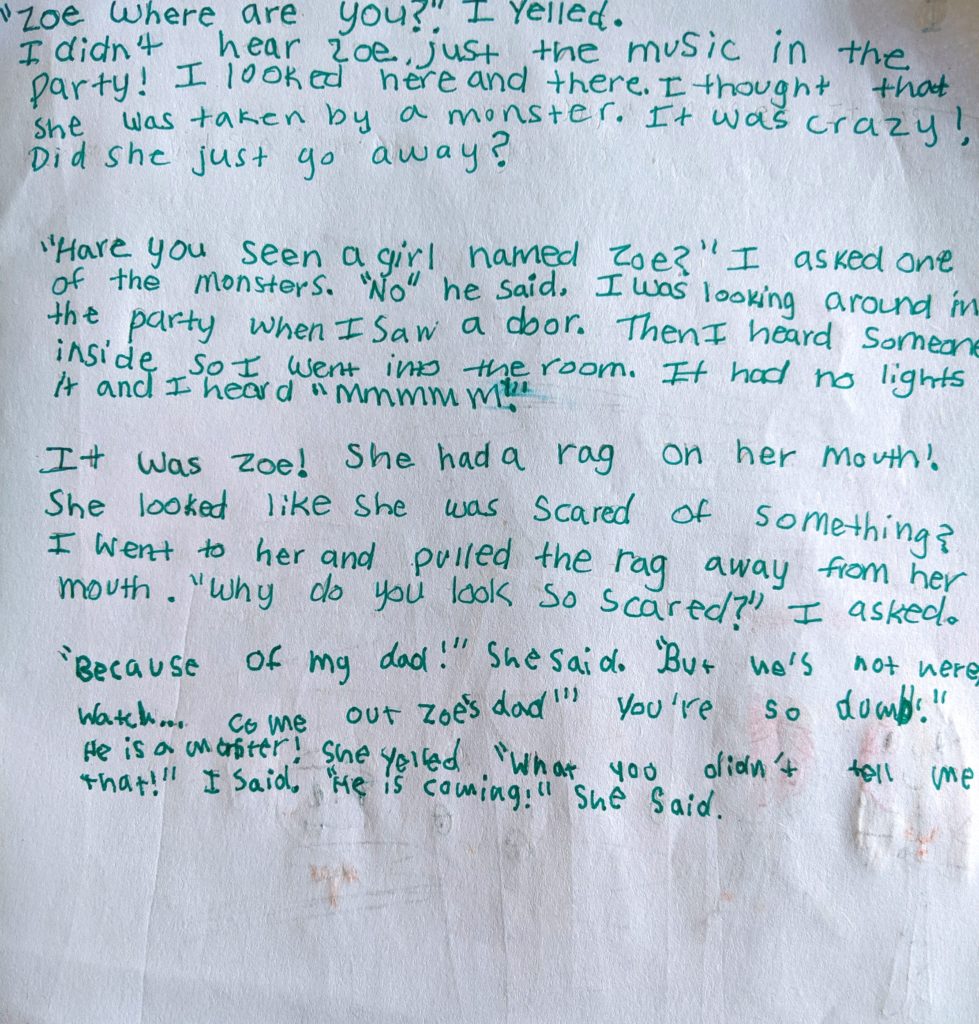 "Zoe where are you?" I Yelled.
I didn't hear Zoe, just the music in the
party! I looked here and there. I thought that
she was taken by a monster. It was crazy!,
Did she just go away?
"Have you seen a girl named Zoe?" I asked one
of the monsters. "No" he said. I was looking around in
the party when I saw a door. Then I heard Someone
inside so I went into the room. It had no lights
it and I heard "Mmmmm!"
It was Zoe! She had a rag on her mouth!
She looked like she was scared of something?
I went to her and pulled the rag away from her
mouth. "Why do you look so scared?" I asked.
"Because of my dad!" She said. "But he's not here,
Watch... come out Zoe's dad"'" You're so dumb!"
He is a monster! She yelled "What you didn't tell me
that!" I said. "He is coming!" She said.